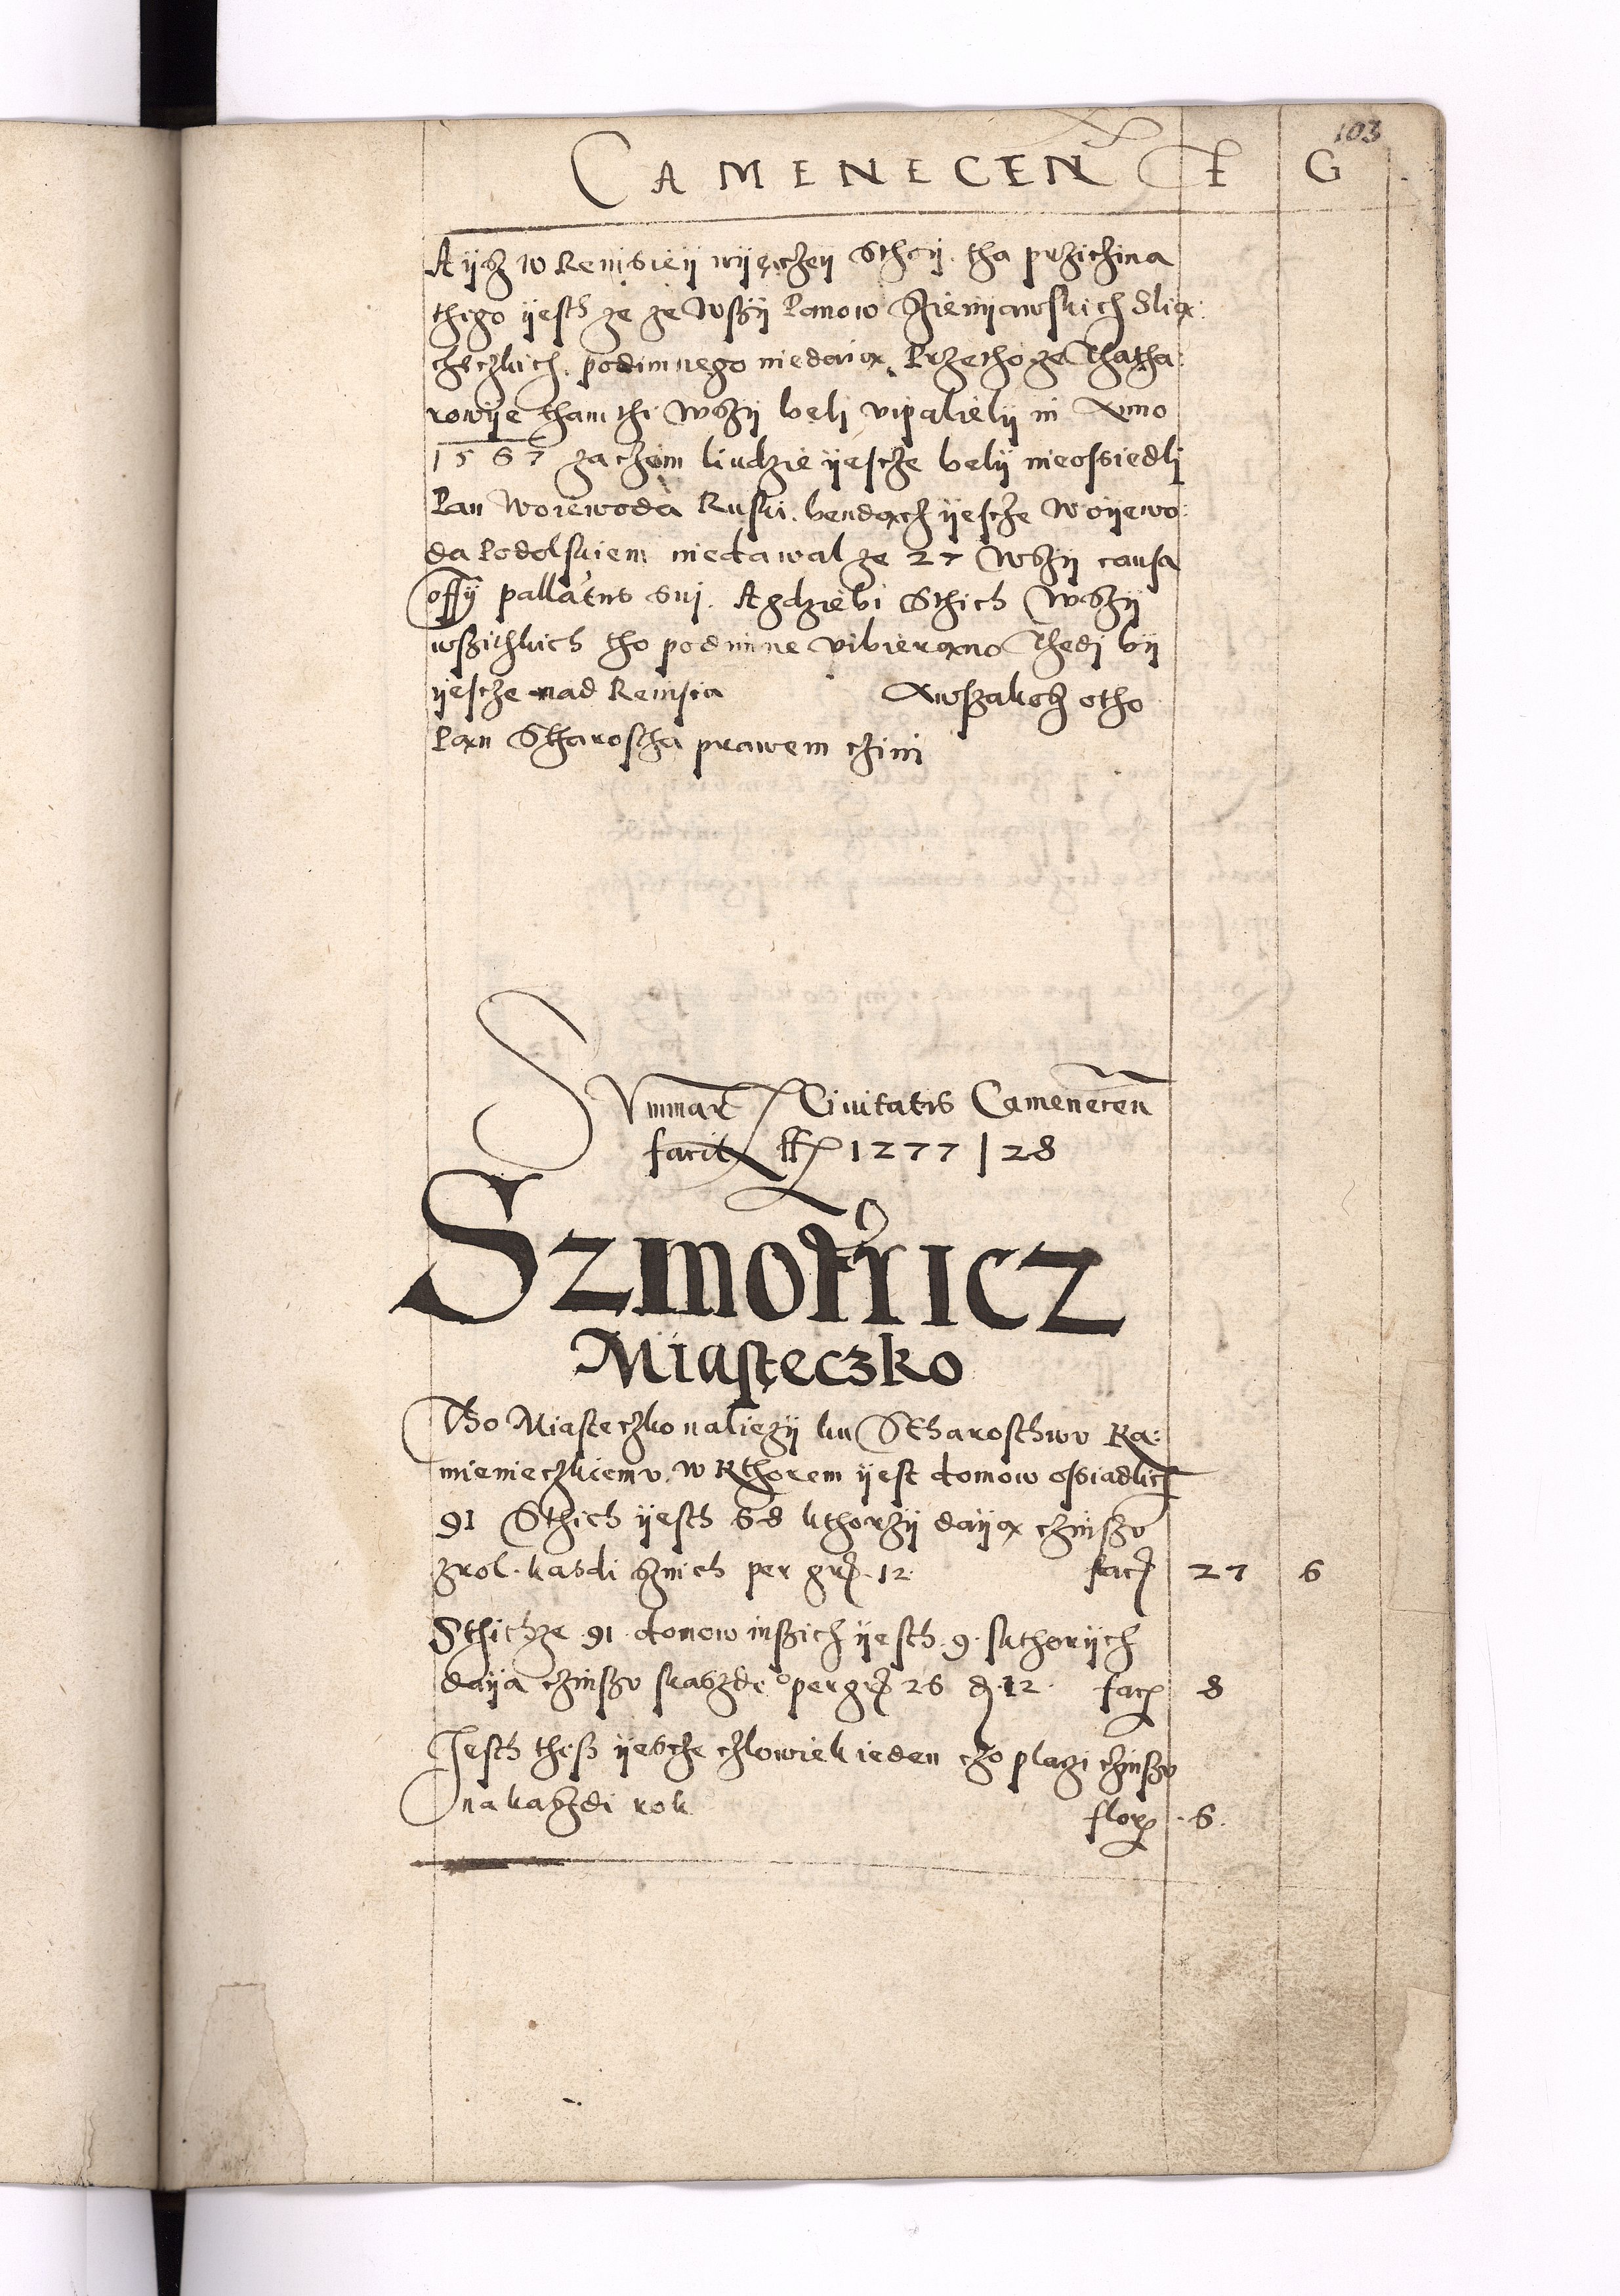 103
CAMENECEN F G
A ijsz w Remisieij wijęczeij Sthoij. tha prziczina
thego ijesth ze ze wszij Panow Ziemijanskich Slia:
checzkich. podimnego niedaia. Przetho ze Thatha:
rowije tham thi wszij beli vipalielij in Anno
1567 za czem liudzie ijescze belij nieossiedli
Pan Woiewoda Ruski. bendacz ijescze Woijewo:
da Podolskiem niedawal ze 27 wszij causa
offij pallatus sui. A gdziebi Sthich wszij
wszithkich tho podimne vibierano Thedi bij
ijescze nad Remisia Awszakosz otho
Pan Stharostha prawem czini
Summar Ciuitatis Camenecen
facit fl 1277 | 28
Szmotricz
Miasteczko
Tho Miasteczko naliezij ku Stharosthwu Ka:
mienieczkiemu. w kthorem ijest domow ossiadlich
91 Sthich ijesth 68 kthorzij daija czinszu
zrol. kasdi sznich per gr. 12. fac 27 6
Sthichze 91 domow inszich ijesth. 9. skthorijch
daija czinszu skaszdego per gr 26 d. 12. fac 8
Jesth thesz ijescze czlowiek ieden czo placzi czinszu
na kaszdi rok flor .6.